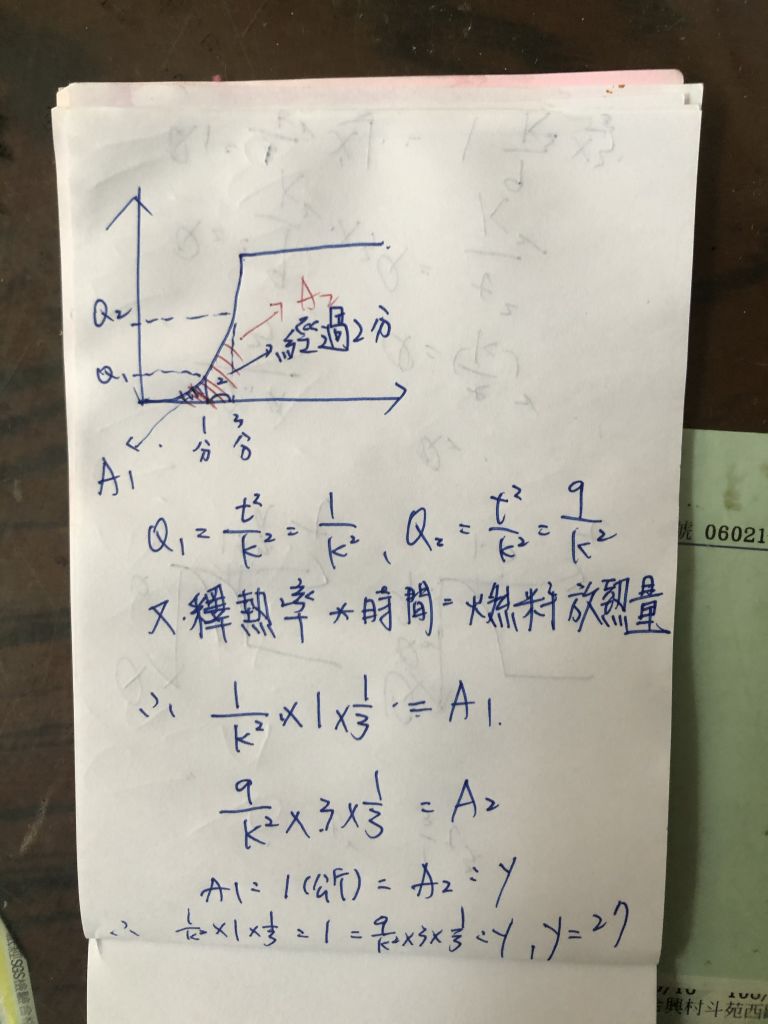 Q2
A2
經過2分
Q1
2
1
3
分
分
A1
Q₁ = t²/k² = 1/k² , Q₂ = t²/k² = 9/k²
又釋熱率*時間=燃料放熱量
∴ 1/k² × 1 × 1/3 = A1.
9/k² × 3 × 1/3 = A2
A1 = 1(公斤) = A2 = y
∴ 1/k² × 1 × 1/3 = 1 = 9/k² × 3 × 1/3 = y , y = 27
號 06021
興村斗苑西